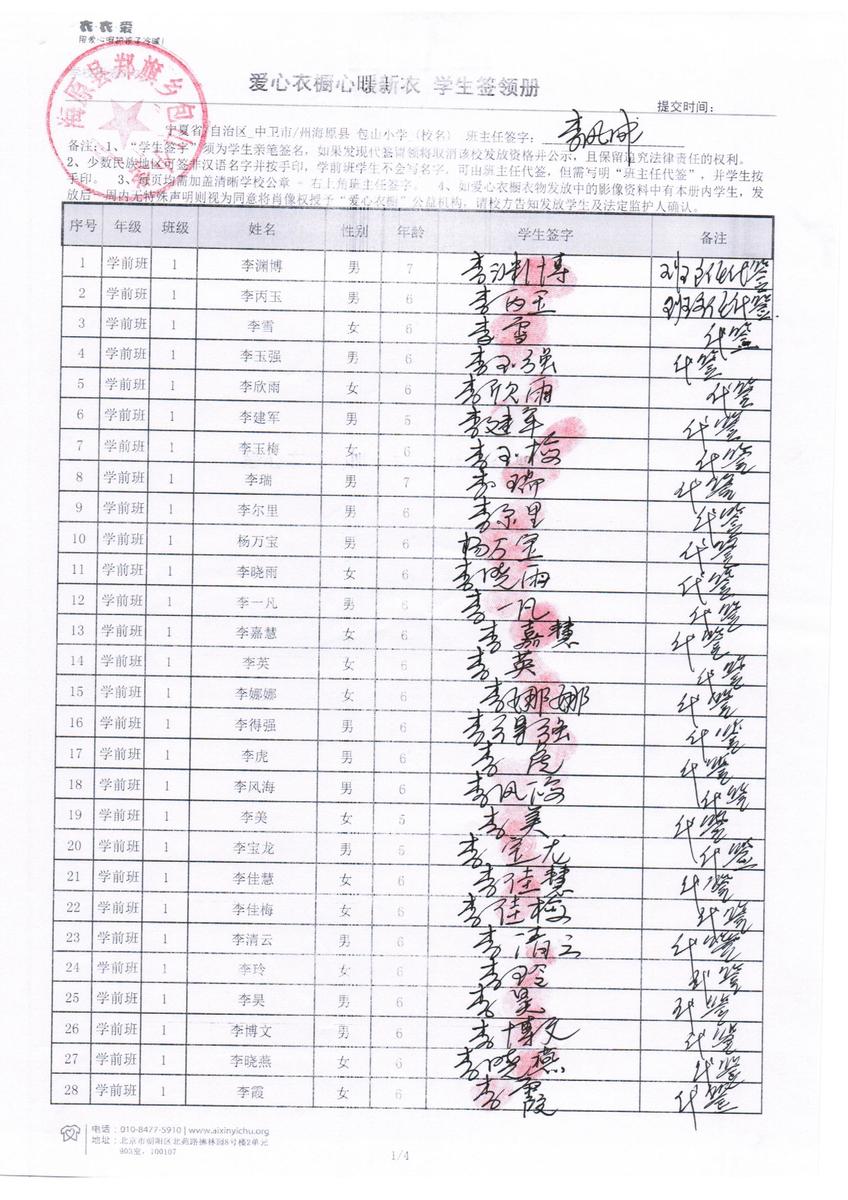 衣衣爱
爱心衣橱心暖新衣 学生签领册
提交时间：
宁夏省/自治区 中卫市/州海原县 包山小学（校名） 班主任签字：
备注：1、“学生签字”须为学生亲笔签名，如果发现代签冒领将取消该校发放资格并公示，且保留追究法律责任的权利。
2、少数民族地区可签非汉语名字并按手印，学前班学生不会写名字，可由班主任代签，但需写明“班主任代签”，并学生按
手印。 3、每页均需加盖清晰学校公章，右上角班主任签字。 4、如爱心衣橱衣物发放中的影像资料中有本册内学生，发
放后一周内无特殊声明则视为同意将肖像权授予“爱心衣橱”公益机构，请校方告知发放学生及法定监护人确认。
序号 年级 班级 姓名 性别 年龄 学生签字 备注
1 学前班 1 李渊博 男 7 李渊博 班主任代签
2 学前班 1 李丙玉 男 6 李丙玉 班主任代签
3 学前班 1 李雪 女 6 李雪 代签
4 学前班 1 李玉强 男 6 李玉强 代签
5 学前班 1 李欣雨 女 6 李欣雨 代签
6 学前班 1 李建军 男 5 李建军 代签
7 学前班 1 李玉梅 女 6 李玉梅 代签
8 学前班 1 李瑞 男 7 李瑞 代签
9 学前班 1 李尔里 男 6 李尔里 代签
10 学前班 1 杨万宝 男 6 杨万宝 代签
11 学前班 1 李晓雨 女 6 李晓雨 代签
12 学前班 1 李一凡 男 6 李一凡 代签
13 学前班 1 李嘉慧 女 6 李嘉慧 代签
14 学前班 1 李英 女 6 李英 代签
15 学前班 1 李娜娜 女 6 李娜娜 代签
16 学前班 1 李得强 男 6 李得强 代签
17 学前班 1 李虎 男 6 李虎 代签
18 学前班 1 李风海 男 6 李风海 代签
19 学前班 1 李美 女 5 李美 代签
20 学前班 1 李宝龙 男 5 李宝龙 代签
21 学前班 1 李佳慧 女 6 李佳慧 代签
22 学前班 1 李佳梅 女 6 李佳梅 代签
23 学前班 1 李清云 男 6 李清云 代签
24 学前班 1 李玲 女 6 李玲 代签
25 学前班 1 李昊 男 6 李昊 代签
26 学前班 1 李博文 男 6 李博文 代签
27 学前班 1 李晓燕 女 6 李晓燕 代签
28 学前班 1 李霞 女 6 李霞 代签
电话：010-8477-5910 | www.aixinyichu.org
地址：北京市朝阳区北苑路拂林园8号楼2单元
903室，100107
1/4
海原县郑旗乡包山